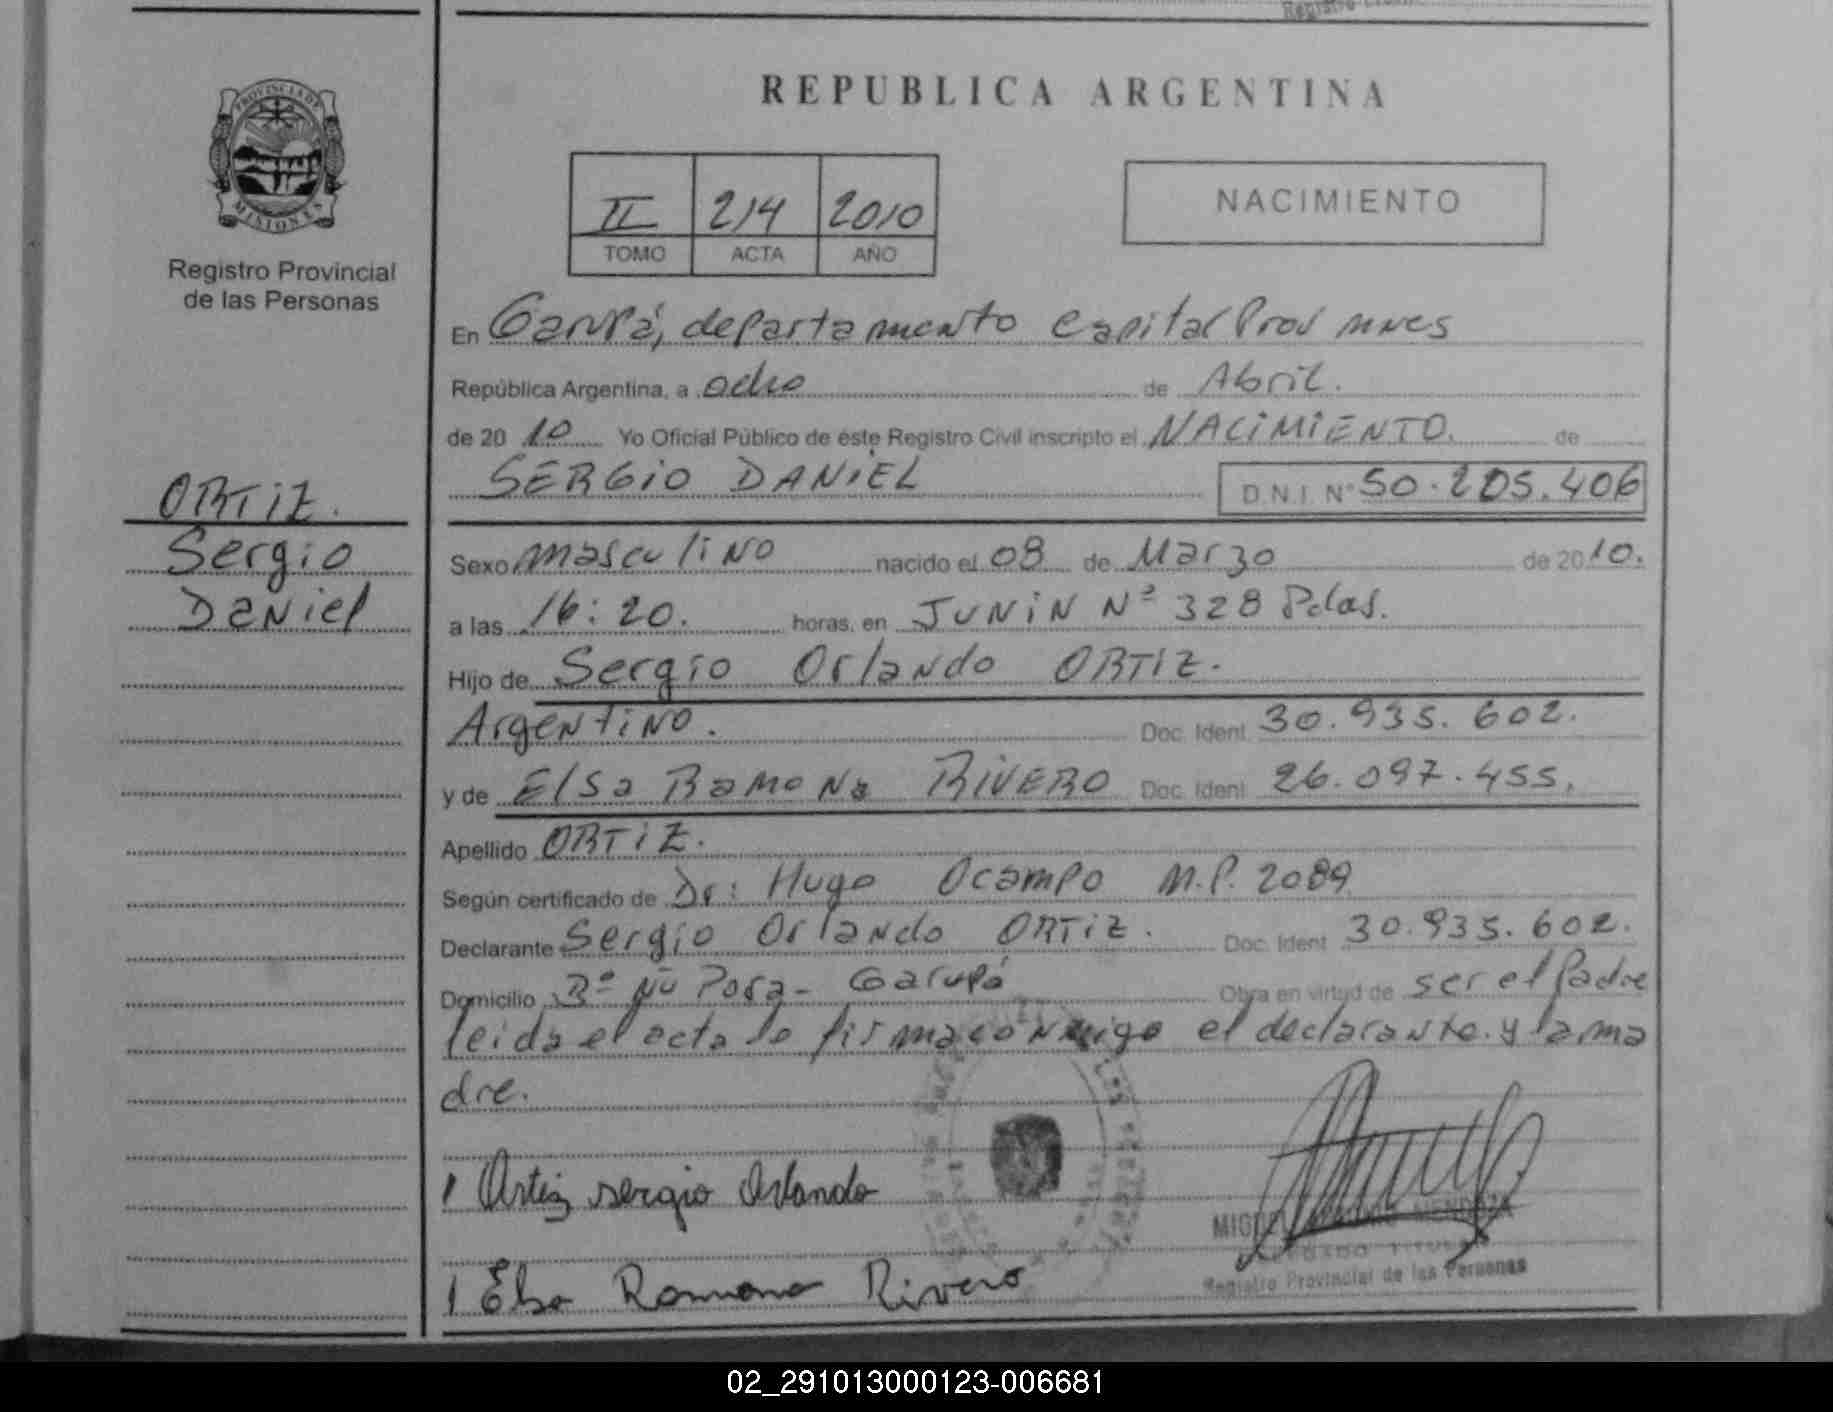 REPUBLICA ARGENTINA
PROVINCIA DE
MISIONES
Registro Provincial
de las Personas
II 214 2010
TOMO ACTA AÑO
NACIMIENTO
En Garupá, departamento Capital Prov mnes
República Argentina, a ocho de Abril.
de 20 10 Yo Oficial Público de éste Registro Civil inscripto el NACIMIENTO. de
SERGIO DANIEL D.N.I. N° 50.205.406
ORTIZ.
Sergio
Daniel
Sexo masculino nacido el 08 de Marzo de 2010.
a las 16:20. horas, en JUNIN Nº 328 Pdas.
Hijo de Sergio Orlando ORTIZ.
Argentino. Doc. Ident. 30.935.602.
y de Elsa Ramona RIVERO Doc. Ident. 26.097.455.
Apellido ORTIZ.
Según certificado de Dr: Hugo Ocampo M.P. 2089
Declarante Sergio Orlando ORTIZ. Doc. Ident. 30.935.602.
Domicilio Bº Ñu Porá - Garupá Obra en virtud de ser el Padre
leida el acta lo firma conmigo el declarante y la ma
dre.
Ortiz sergio Orlando
MIGUEL MENDOZA
DELEGADO TITULAR
Registro Provincial de las Personas
Elsa Ramona Rivero
02_291013000123-006681